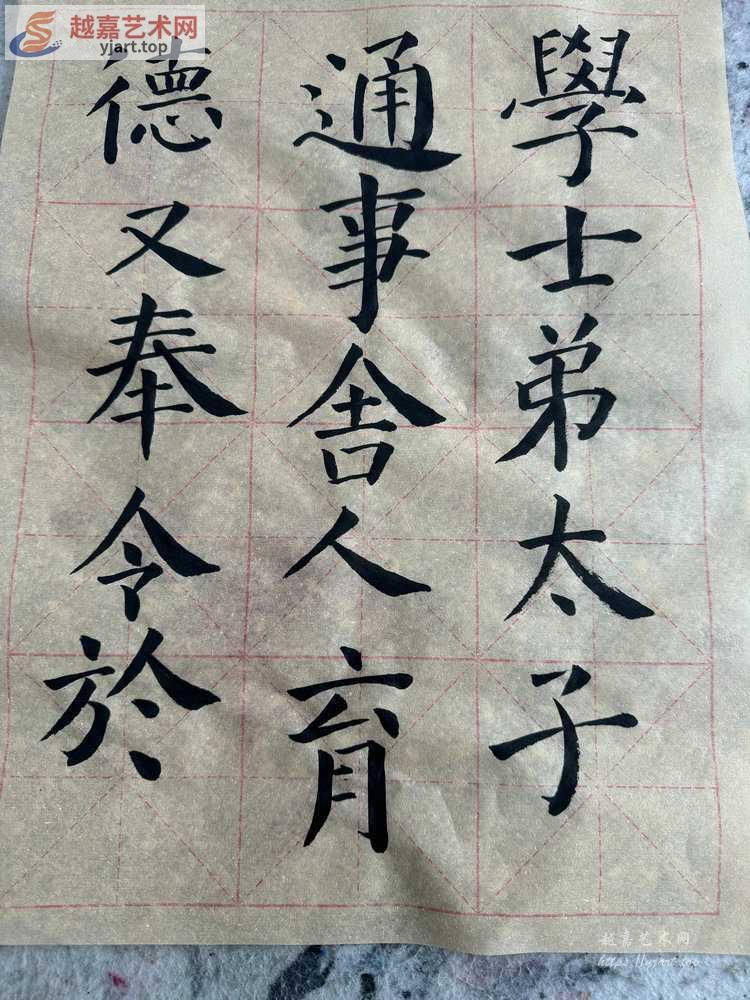 越嘉艺术网
yjart.top
學士弟太子
通事舍人育
德又奉令於
越嘉艺术网